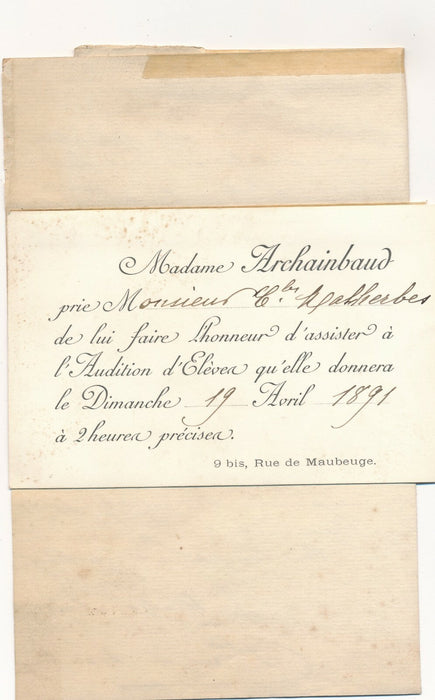 Madame Archainbaud
prie Monsieur Ch.les Malherbes
de lui faire l'honneur d'assister à
l'Audition d'Elèves qu'elle donnera
le Dimanche 19 Avril 1891
à 2 heures précises.
9 bis, Rue de Maubeuge.